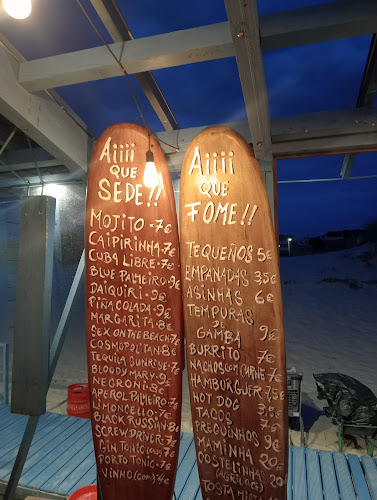 Aiiii
QUE
SEDE!!
MOJITO - 7€
CAIPIRINHA 7€
CUBA LIBRE - 7€
BLUE PALMEIRO 9€
DAIQUIRI - 9€
PIÑA COLADA - 9€
MARGARITA - 8€
SEX ON THE BEACH 7€
COSMOPOLITAN 8€
TEQUILA SUNRISE - 7€
BLOODY MARY - 9€
NEGRONI - 8€
APEROL PALMEIRO
LIMONCELLO - 7€
BLACK RUSSIAN 8€
SCREW DRIVER - 7€
GIN TONIC
PORTO TONIC - 7€
VINHO
Aiiii
QUE
FOME!!
TEQUEÑOS 5€
EMPANADAS 3,5€
ASINHAS 6€
TEMPURAS
GAMBA 9€
BURRITO 7€
NACHOS COM CARNE 7€
HAMBURGUER 7,5€
HOT DOG 3,5€
TACOS 7€
PREGUINHOS 9€
MAMINHA 20€
COSTELINHA 20€